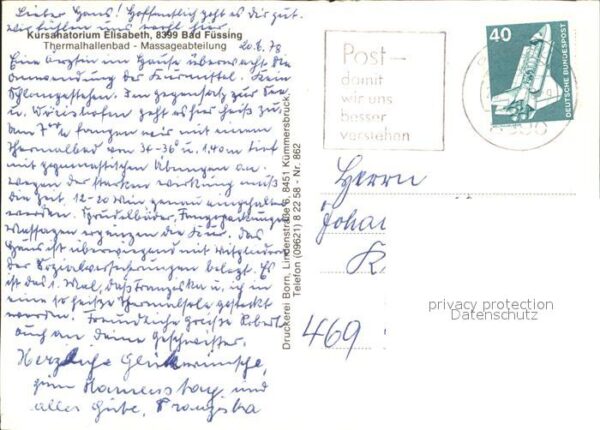 Lieber Hans! Hoffentlich geht es dir gut.
wir fühlen uns wohl hier.
Kursanatorium Elisabeth, 8399 Bad Füssing
Thermalhallenbad - Massageabteilung
20.6.78
Eine Ärztin im Hause überwacht die
Anwendung der Kurmittel. Kein
Schlangestehen. Im Gegensatz zur
u. Wörishofen geht es hier heiß zu.
Um 7 Uhr fangen wir mit einem
Thermalbad von 34-36° u. 1.40m tief
mit gymnastischen Übungen an.
wegen der starken Wirkung muß
die Zeit 12-20 Min genau eingehalten
werden. Sprudelbäder, Fangopackungen
Massagen ergänzen die Kur. Das
Haus ist überwiegend mit Mitgliedern
der Sozialversicherungen belegt. Es
ist das 1. Mal, daß Franziska u. ich in
eine so heiße Thermalsole gesteckt
werden. Freundliche Grüße Robert
auch an deine Geschwister.
Herzliche Glückwünsche,
zum Namenstag und
alles Gute, Franziska
Druckerei Born, Lindenstraße 6, 8451 Kümmersbruck,
Telefon (09621) 8 22 58 - Nr. 862
Post-
damit
wir uns
besser
verstehen
40
DEUTSCHE BUNDESPOST
Herrn
Johan
K
469
privacy protection
Datenschutz